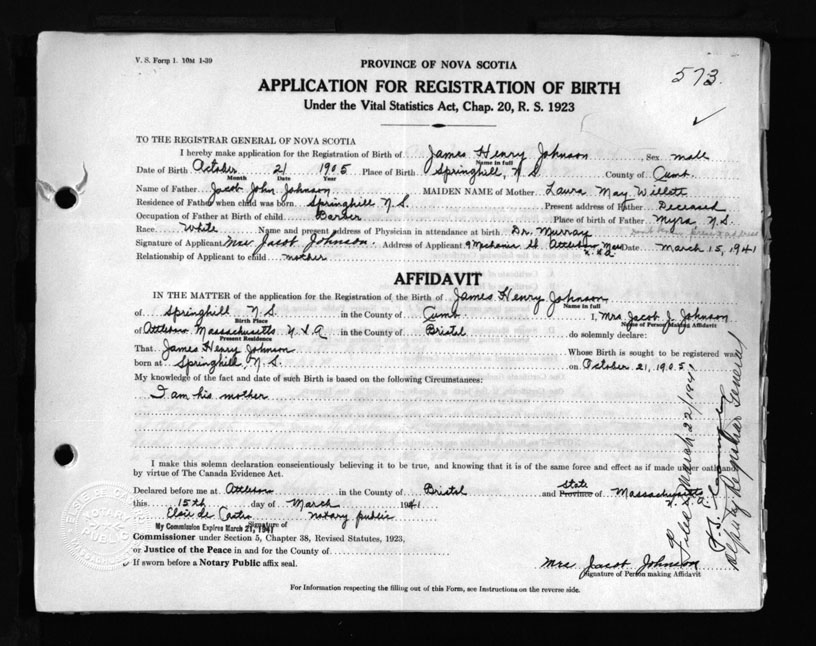 V. S. Form 1. 10M 1-39
PROVINCE OF NOVA SCOTIA
573
APPLICATION FOR REGISTRATION OF BIRTH
Under the Vital Statistics Act, Chap. 20, R. S. 1923
TO THE REGISTRAR GENERAL OF NOVA SCOTIA
I hereby make application for the Registration of Birth of James Henry Johnson Sex male
Name in full
Date of Birth October 21 1905 Place of Birth Springhill, N.S. County of Cumb.
Month Date Year
Name of Father Jacob John Johnson MAIDEN NAME of Mother Laura May Willott
Residence of Father when child was born Springhill N.S. Present address of Father Deceased
Occupation of Father at Birth of child Barber Place of birth of Father Myra N.S.
Race White Name and present address of Physician in attendance at birth Dr. Murray present address
Signature of Applicant Mrs Jacob Johnson. Address of Applicant 9 Mechanic St. Attleboro Mass Date March 15, 1941
U.S.A.
Relationship of Applicant to child mother
AFFIDAVIT
IN THE MATTER of the application for the Registration of the Birth of James Henry Johnson
Name in full
of Springhill N.S. in the County of Cumb. I, Mrs Jacob J. Johnson
Birth Place Name of Person Making Affidavit
of Attleboro Massachusetts U.S.A in the County of Bristol do solemnly declare:
Present Residence
That James Henry Johnson Whose Birth is sought to be registered was
born at Springhill N.S. on October 21, 1905
My knowledge of the fact and date of such Birth is based on the following Circumstances:
I am his mother
I make this solemn declaration conscientiously believing it to be true, and knowing that it is of the same force and effect as if made under oath and
by virtue of The Canada Evidence Act.
state
Declared before me at Attleboro in the County of Bristol and Province of Massachusetts
U.S.A.
this 15th day of March 1941
Elsie de Castro notary public
My Commission Expires March 21, 1947 Signature of
Commissioner under Section 5, Chapter 38, Revised Statutes, 1923,
or Justice of the Peace in and for the County of
If sworn before a Notary Public affix seal.
Mrs Jacob Johnson
Signature of Person making Affidavit
For Information respecting the filling out of this Form, see Instructions on the reverse side.
Filed March 22/1941
Deputy Registrar General
NOTARY PUBLIC